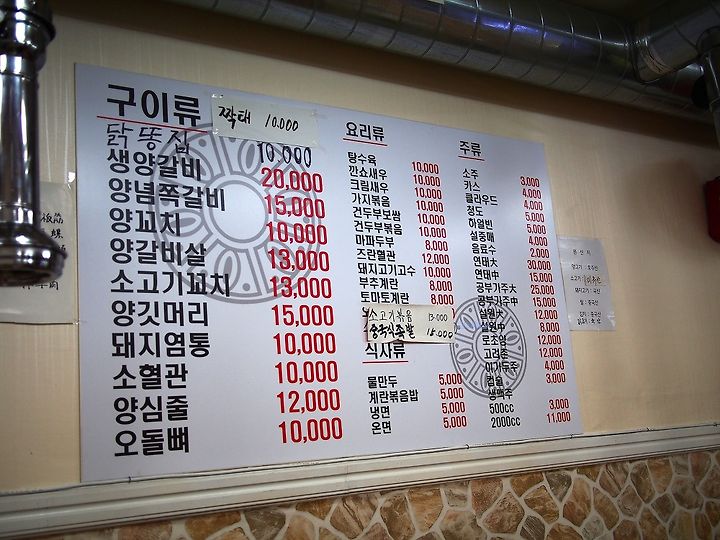 구이류
짝태 10.000
닭똥집 10,000
생양갈비 20,000
양념쪽갈비 15,000
양꼬치 10,000
양갈비살 13,000
소고기꼬치 13,000
양깃머리 15,000
돼지염통 10,000
소혈관 10,000
양심줄 12,000
오돌뼈 10,000
요리류
탕수육 10,000
깐쇼새우 10,000
크림새우 10,000
가지볶음 10,000
건두부보쌈 10,000
건두부볶음 10,000
마파두부 8,000
즈란혈관 12,000
돼지고기고수 10,000
부추계란 8,000
토마토계란 8,000
소고기볶음 13.000
중국식족발 15.000
식사류
물만두 5,000
계란볶음밥 5,000
냉면 5,000
온면 5,000
주류
소주 3,000
카스 4,000
클라우드 4,000
청도 5,000
하얼빈 5,000
설중매 5,000
음료수 2,000
연태大 30,000
연태中 15,000
공부가주大 25,000
공부가주中 15,000
설원大 12,000
설원中 8,000
로조양 12,000
고려촌 12,000
이가두주 4,000
컵술 3,000
생맥주
500cc 3,000
2000cc 11,000
원산지
양고기 : 호주산
돼지고기 : 국산
쌀 : 중국산
김치 : 중국산